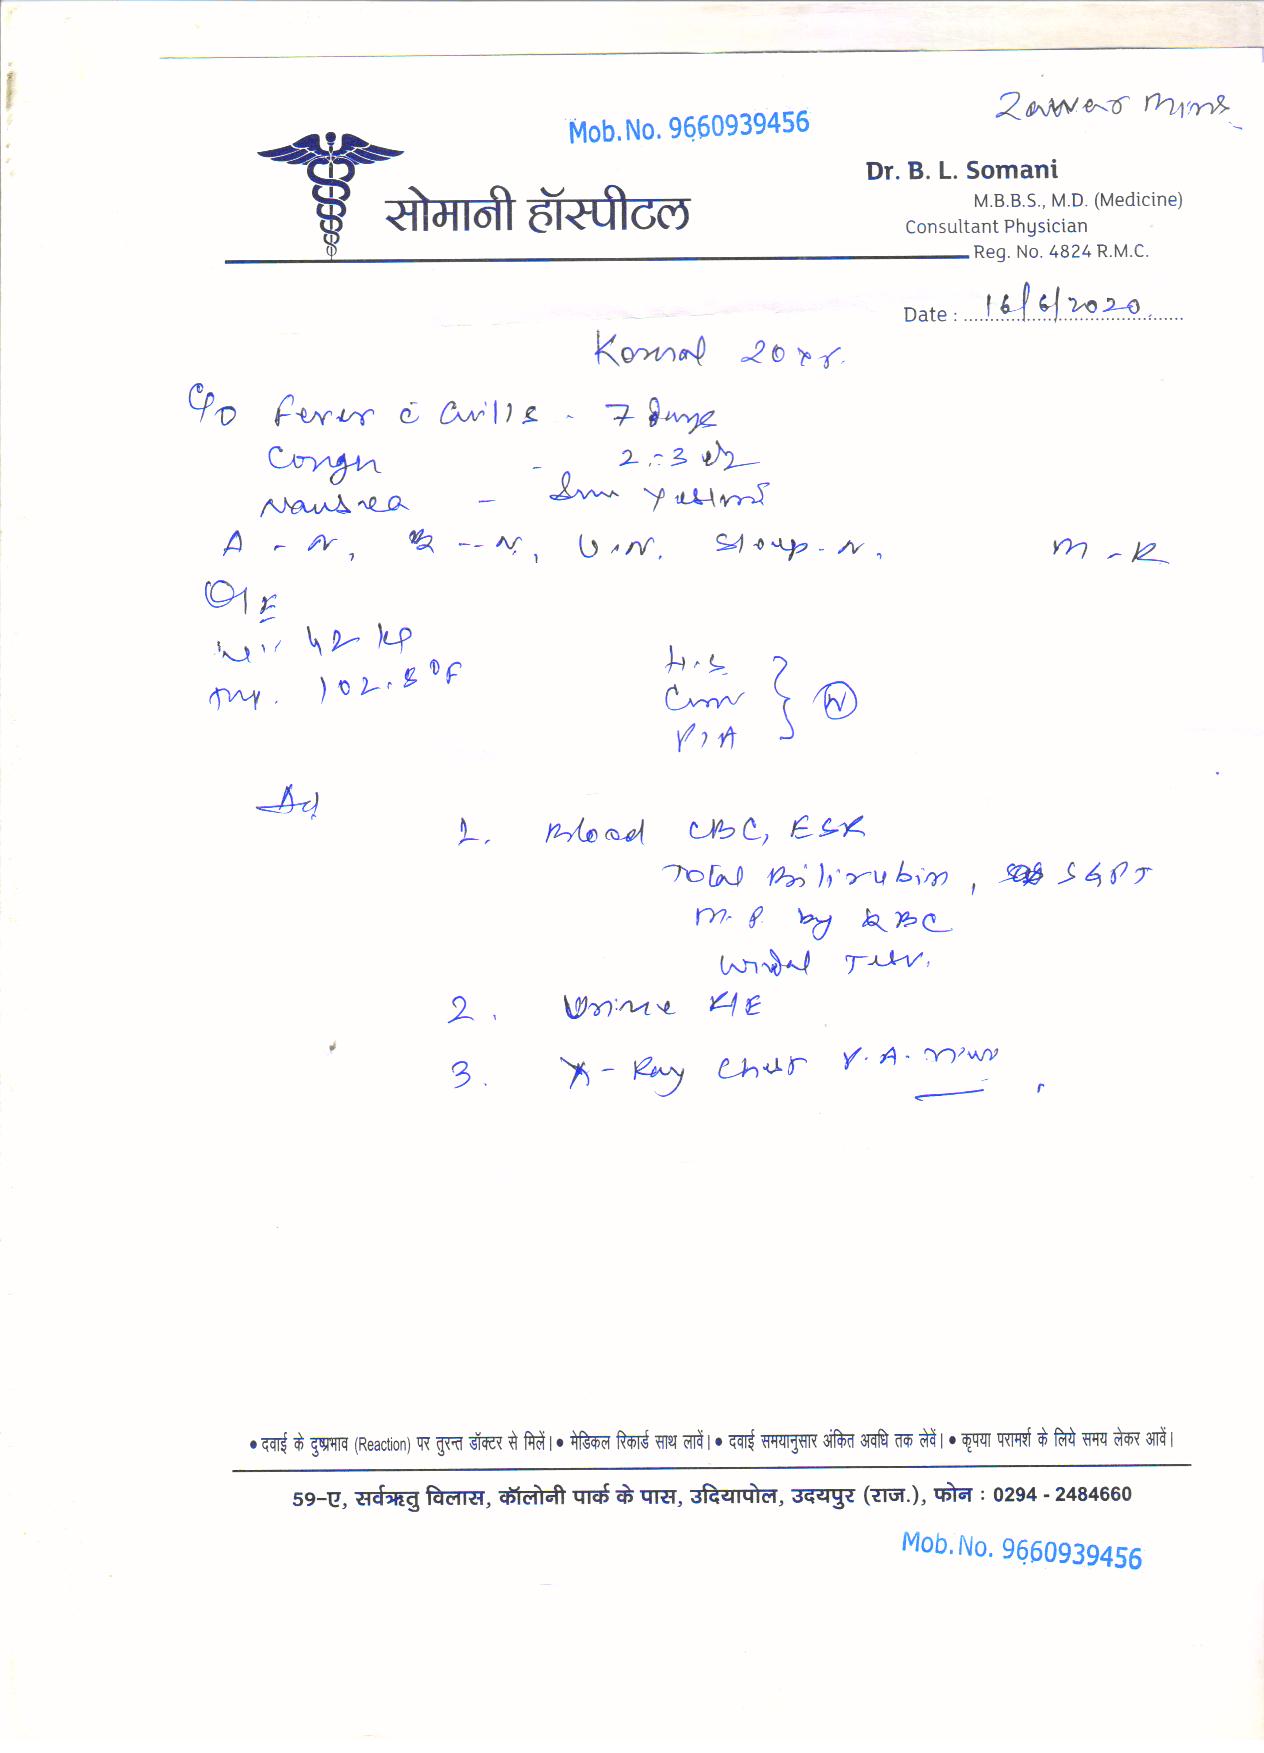 Zawar Mines
Mob. No. 9660939456
सोमानी हॉस्पीटल
Dr. B. L. Somani
M.B.B.S., M.D. (Medicine)
Consultant Physician
Reg. No. 4824 R.M.C.
Date : 16/6/2020
Komal 20 yr.
C/O Fever c̄ Chills - 7 Days
Cough - 2-3 d
Nausea - Since Yesterday
A - N, B - N, U - N, Sleep - N, M - R
O/E
Wt. 42 kg
Temp. 102.8°F
H.S
Chest
P/A
N
Adv
1. Blood CBC, ESR
Total Bilirubin, SGPT
M.P. by QBC
Widal Test.
2. Urine R/E
3. X-Ray Chest P.A. View
• दवाई के दुष्प्रभाव (Reaction) पर तुरन्त डॉक्टर से मिलें। • मेडिकल रिकार्ड साथ लावें। • दवाई समयानुसार अंकित अवधि तक लेवें। • कृपया परामर्श के लिये समय लेकर आवें।
59-ए, सर्वऋतु विलास, कॉलोनी पार्क के पास, उदियापोल, उदयपुर (राज.), फोन : 0294 - 2484660
Mob. No. 9660939456